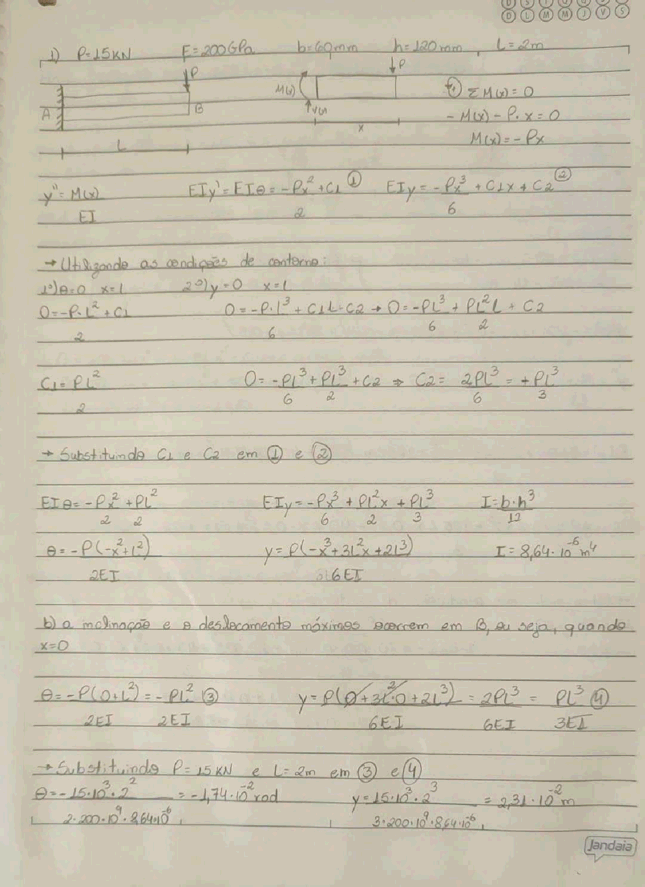 D S T Q Q S S
D L M M J V S
1) P=15KN E=200GPa b=60mm h=120mm, L=2m
P
A B
L
M(x) V(x) P
x
↺ ΣM(x)=0
-M(x)-P·x=0
M(x)=-Px
y''=M(x)/EI EIy'=EIθ=-Px²/2+C1 ① EIy=-Px³/6+C1x+C2 ②
→ Utilizando as condições de contorno:
1º) θ=0 x=l 2º) y=0 x=l
0=-P·L²/2+C1 0=-P·l³/6+C1L+C2 → 0=-PL³/6+PL²L/2+C2
C1=PL²/2 0=-PL³/6+PL³/2+C2 ⇒ C2=2PL³/6=+PL³/3
→ Substituindo C1 e C2 em ① e ②
EIθ=-Px²/2+PL²/2 EIy=-Px³/6+PL²x/2+PL³/3 I=b·h³/12
θ=-P(-x²+L²)/2EI y=P(-x³+3L²x+2L³)/6EI I=8,64·10⁻⁶m⁴
b) a inclinação e o deslocamento máximos ocorrem em B, ou seja, quando
x=0
θ=-P(0+L²)/2EI=-PL²/2EI ③ y=P(0+3L²0+2L³)/6EI=2PL³/6EI=PL³/3EI ④
→ Substituindo P=15KN e L=2m em ③ e ④
θ=-15·10³·2²/2·200·10⁹·8,64·10⁻⁶=-1,74·10⁻²rad y=15·10³·2³/3·200·10⁹·8,64·10⁻⁶=2,31·10⁻²m
Jandaia